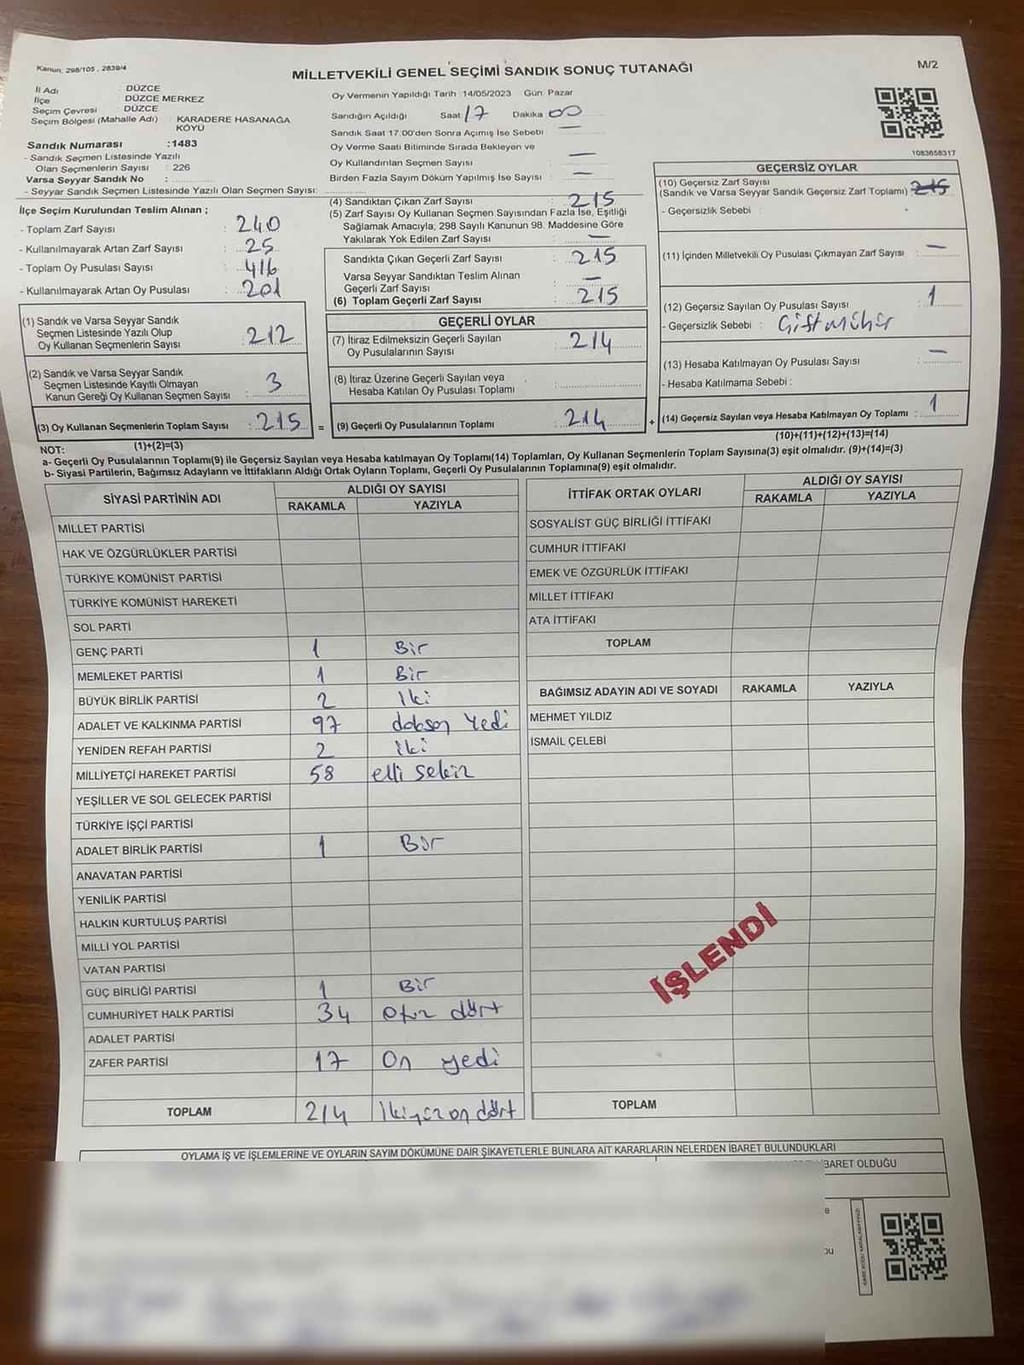 Kanun: 298/105 , 2839/4
MİLLETVEKİLİ GENEL SEÇİMİ SANDIK SONUÇ TUTANAĞI
M/2
İl Adı : DÜZCE
İlçe : DÜZCE MERKEZ
Seçim Çevresi : DÜZCE
Seçim Bölgesi (Mahalle Adı) : KARADERE HASANAĞA KÖYÜ
Sandık Numarası :1483
- Sandık Seçmen Listesinde Yazılı
Olan Seçmenlerin Sayısı : 226
Varsa Seyyar Sandık No :
- Seyyar Sandık Seçmen Listesinde Yazılı Olan Seçmen Sayısı:
Oy Vermenin Yapıldığı Tarih :14/05/2023 Gün: Pazar
Sandığın Açıldığı Saat: 17 Dakika 00
Sandık Saat 17.00'den Sonra Açımış İse Sebebi : —
Oy Verme Saati Bitiminde Sırada Bekleyen ve
Oy Kullandırılan Seçmen Sayısı : —
Birden Fazla Sayım Döküm Yapılmış İse Sayısı : —
1083658317
İlçe Seçim Kurulundan Teslim Alınan ;
- Toplam Zarf Sayısı : 240
- Kullanılmayarak Artan Zarf Sayısı : 25
- Toplam Oy Pusulası Sayısı : 416
- Kullanılmayarak Artan Oy Pusulası : 201
(1) Sandık ve Varsa Seyyar Sandık
Seçmen Listesinde Yazılı Olup
Oy Kullanan Seçmenlerin Sayısı : 212
(2) Sandık ve Varsa Seyyar Sandık
Seçmen Listesinde Kayıtlı Olmayan
Kanun Gereği Oy Kullanan Seçmen Sayısı : 3
(3) Oy Kullanan Seçmenlerin Toplam Sayısı : 215
(1)+(2)=(3)
(4) Sandıktan Çıkan Zarf Sayısı : 215
(5) Zarf Sayısı Oy Kullanan Seçmen Sayısından Fazla İse, Eşitliği
Sağlamak Amacıyla, 298 Sayılı Kanunun 98. Maddesine Göre
Yakılarak Yok Edilen Zarf Sayısı : —
Sandıkta Çıkan Geçerli Zarf Sayısı : 215
Varsa Seyyar Sandıktan Teslim Alınan
Geçerli Zarf Sayısı : —
(6) Toplam Geçerli Zarf Sayısı : 215
GEÇERLİ OYLAR
(7) İtiraz Edilmeksizin Geçerli Sayılan
Oy Pusulalarının Sayısı : 214
(8) İtiraz Üzerine Geçerli Sayılan veya
Hesaba Katılan Oy Pusulası Toplamı :
= (9) Geçerli Oy Pusulalarının Toplamı : 214
GEÇERSİZ OYLAR
(10) Geçersiz Zarf Sayısı
(Sandık ve Varsa Seyyar Sandık Geçersiz Zarf Toplamı) : 215
- Geçersizlik Sebebi :
(11) İçinden Milletvekili Oy Pusulası Çıkmayan Zarf Sayısı : —
(12) Geçersiz Sayılan Oy Pusulası Sayısı : 1
- Geçersizlik Sebebi : Çift mühür
(13) Hesaba Katılmayan Oy Pusulası Sayısı : —
- Hesaba Katılmama Sebebi :
+ (14) Geçersiz Sayılan veya Hesaba Katılmayan Oy Toplamı : 1
(10)+(11)+(12)+(13)=(14)
NOT:
a- Geçerli Oy Pusulalarının Toplamı(9) ile Geçersiz Sayılan veya Hesaba katılmayan Oy Toplamı(14) Toplamları, Oy Kullanan Seçmenlerin Toplam Sayısına(3) eşit olmalıdır. (9)+(14)=(3)
b- Siyasi Partilerin, Bağımsız Adayların ve İttifakların Aldığı Ortak Oyların Toplamı, Geçerli Oy Pusulalarının Toplamına(9) eşit olmalıdır.
SİYASİ PARTİNİN ADI ALDIĞI OY SAYISI
RAKAMLA YAZIYLA
MİLLET PARTİSİ
HAK VE ÖZGÜRLÜKLER PARTİSİ
TÜRKİYE KOMÜNİST PARTİSİ
TÜRKİYE KOMÜNİST HAREKETİ
SOL PARTİ
GENÇ PARTİ 1 Bir
MEMLEKET PARTİSİ 1 Bir
BÜYÜK BİRLİK PARTİSİ 2 İki
ADALET VE KALKINMA PARTİSİ 97 doksan Yedi
YENİDEN REFAH PARTİSİ 2 iki
MİLLİYETÇİ HAREKET PARTİSİ 58 elli sekiz
YEŞİLLER VE SOL GELECEK PARTİSİ
TÜRKİYE İŞÇİ PARTİSİ
ADALET BİRLİK PARTİSİ 1 Bir
ANAVATAN PARTİSİ
YENİLİK PARTİSİ
HALKIN KURTULUŞ PARTİSİ
MİLLİ YOL PARTİSİ
VATAN PARTİSİ
GÜÇ BİRLİĞİ PARTİSİ 1 Bir
CUMHURİYET HALK PARTİSİ 34 otuz dört
ADALET PARTİSİ
ZAFER PARTİSİ 17 On yedi
TOPLAM 214 İkiyüz on dört
İTTİFAK ORTAK OYLARI ALDIĞI OY SAYISI
RAKAMLA YAZIYLA
SOSYALİST GÜÇ BİRLİĞİ İTTİFAKI
CUMHUR İTTİFAKI
EMEK VE ÖZGÜRLÜK İTTİFAKI
MİLLET İTTİFAKI
ATA İTTİFAKI
TOPLAM
BAĞIMSIZ ADAYIN ADI VE SOYADI RAKAMLA YAZIYLA
MEHMET YILDIZ
İSMAİL ÇELEBİ
İŞLENDİ
TOPLAM
OYLAMA İŞ VE İŞLEMLERİNE VE OYLARIN SAYIM DÖKÜMÜNE DAİR ŞİKAYETLERLE BUNLARA AİT KARARLARIN NELERDEN İBARET BULUNDUKLARI
BARET OLDUĞU